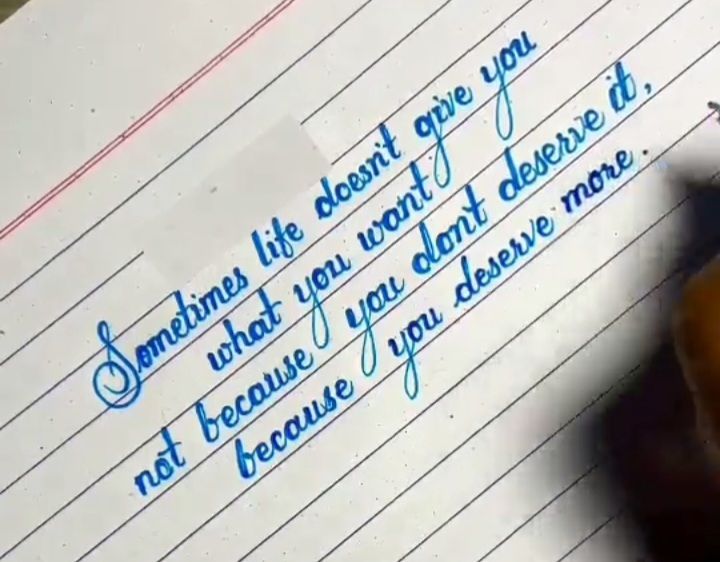 Sometimes life doesn't give you
what you want
not because you don't deserve it,
because you deserve more.